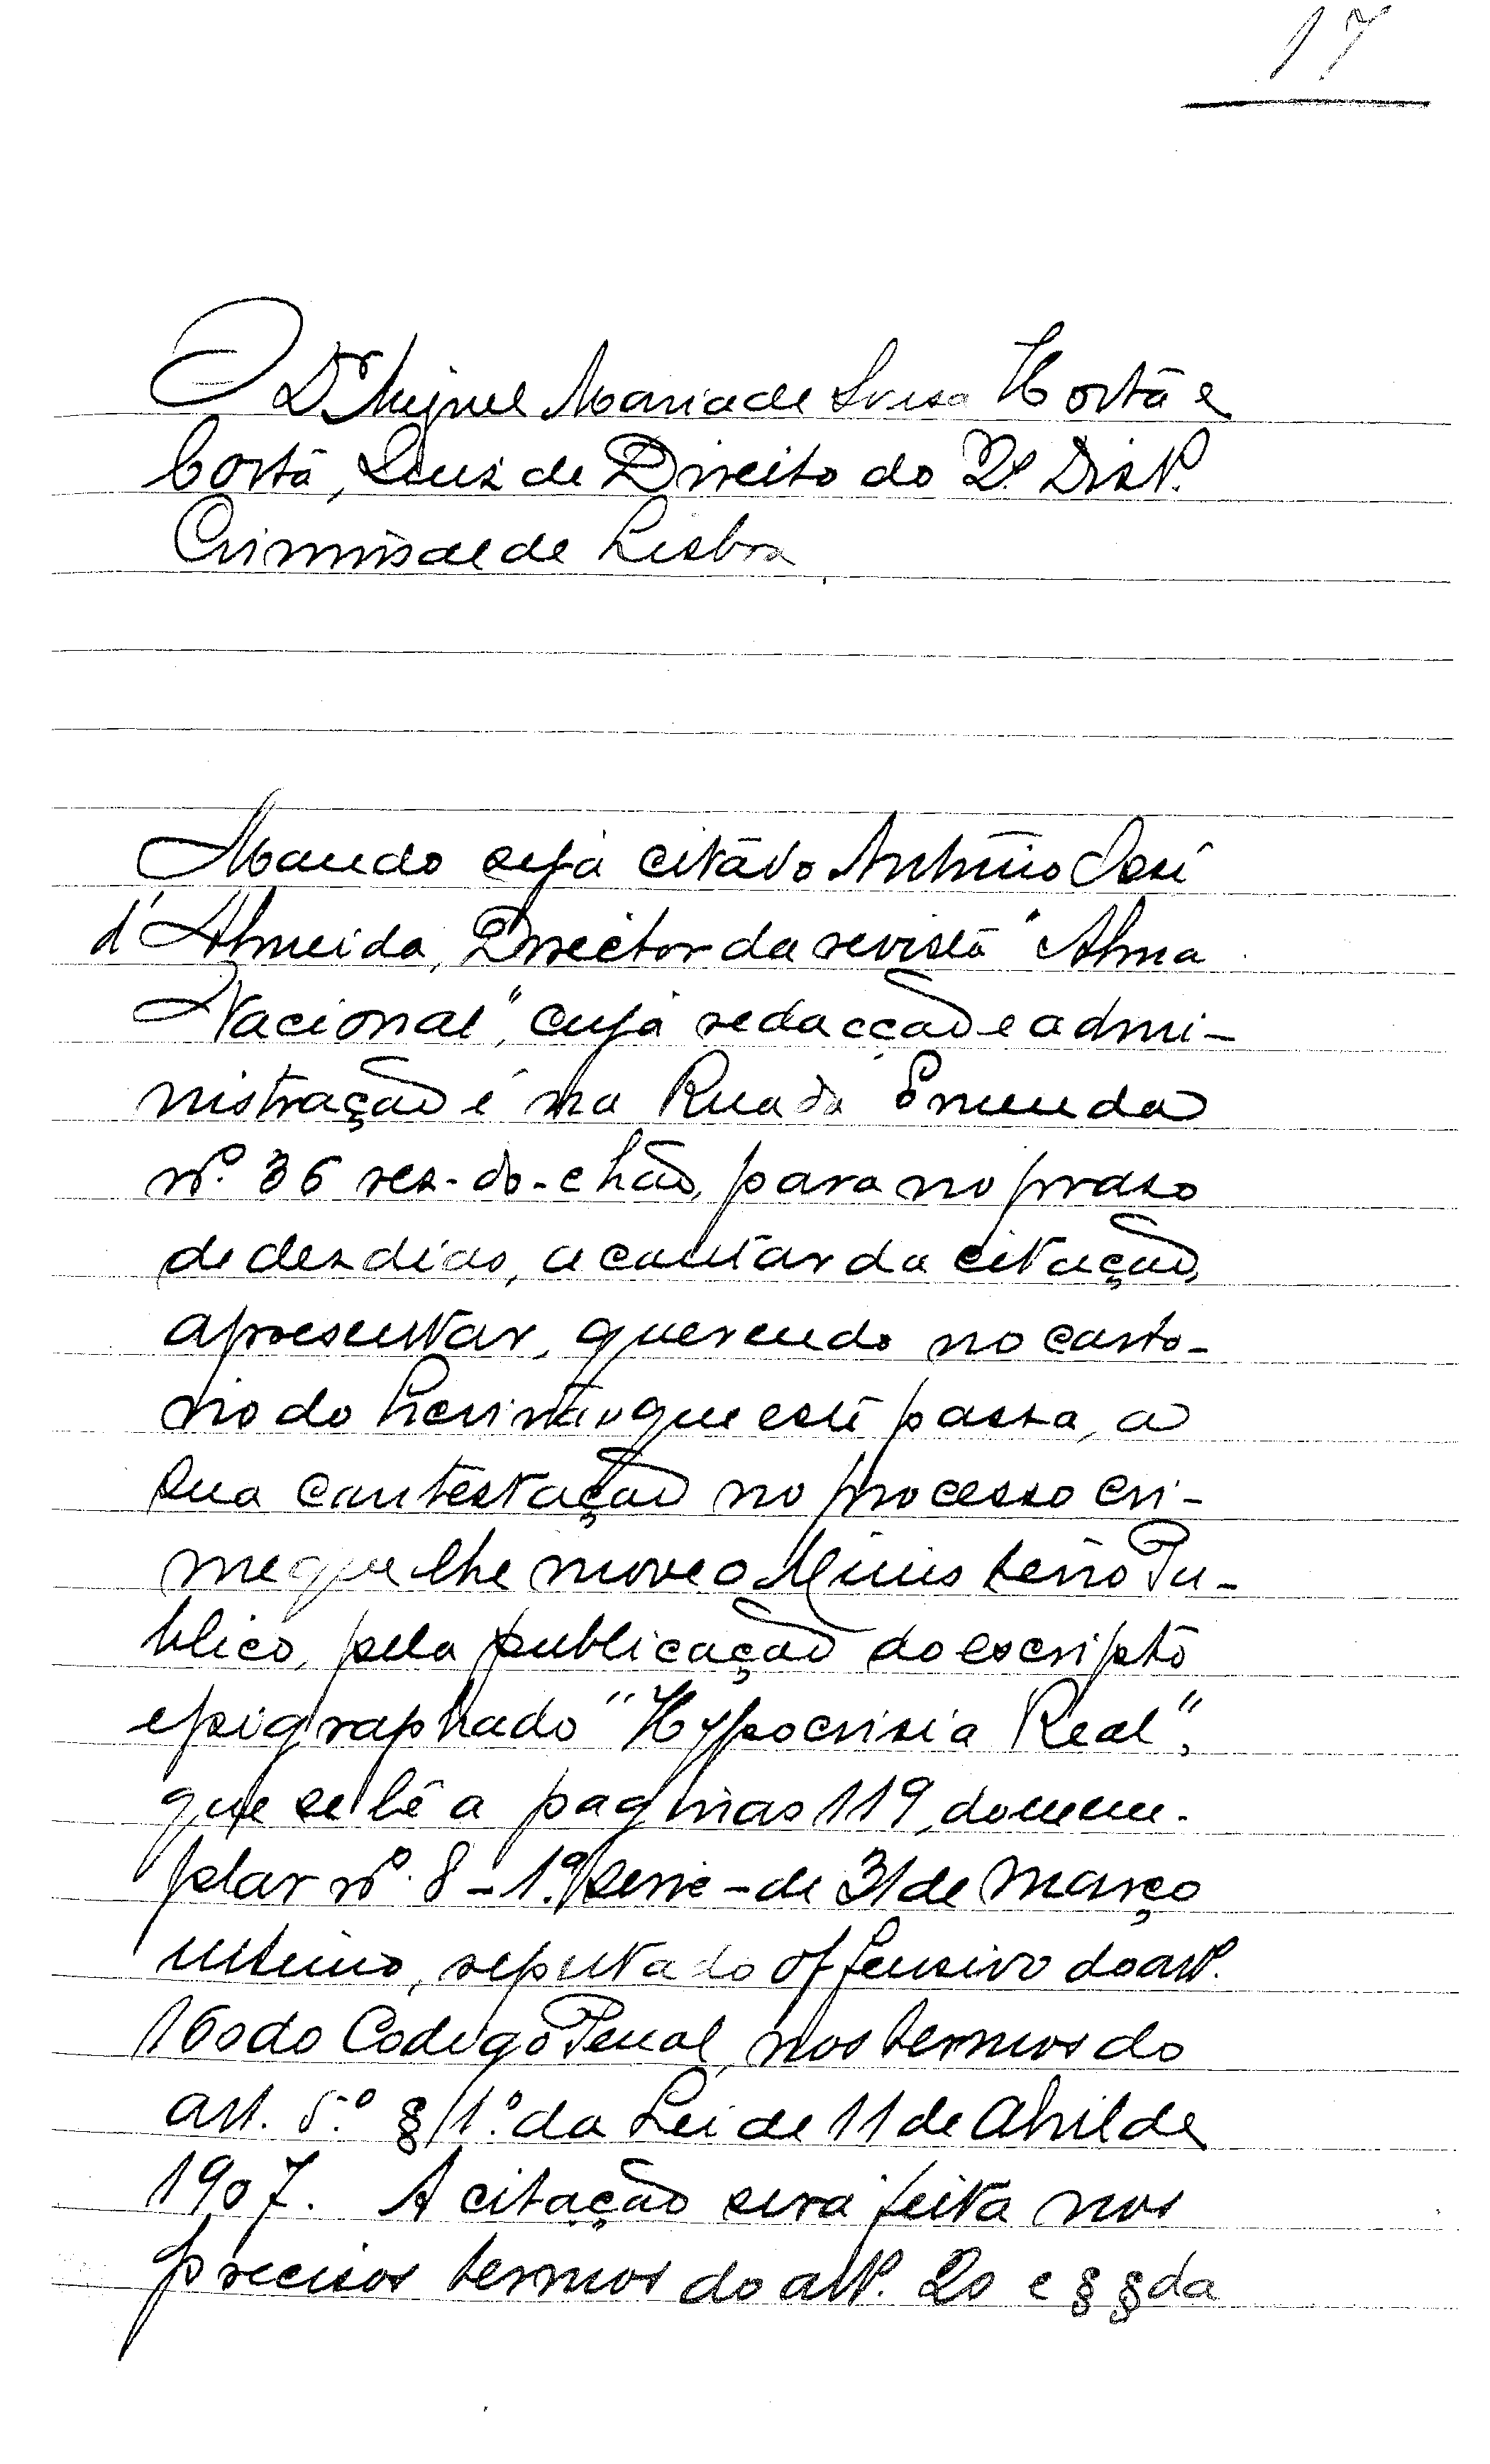 17
O Dr Miguel Maria de Sousa Horta e
Costa, Juiz de Direito do 2º Distº.
Criminal de Lisboa
Mando seja citado António José
d'Almeida, Director da revista "Alma
Nacional", cuja redacção e admi-
nistração é na Rua da Emenda
nº. 36 rez-do-chão, para no praso
de dez dias, a contar da citação,
apresentar, querendo no carto-
rio do Escrivão que este passa, a
sua contestação no processo cri-
me que lhe move o Ministerio Pu-
blico, pela publicação do escripto
epigraphado "Hypocrisia Real",
que se lê a paginas 119, do exem-
plar nº. 8 - 1.ª Serie - de 31 de Março
ultimo, reputado offensivo do artº.
160 do Codigo Penal, nos termos do
art. 5.º § 1.º da Lei de 11 de Abril de
1907. A citação sera feita nos
precisos termos do artº. 20 e §§ da